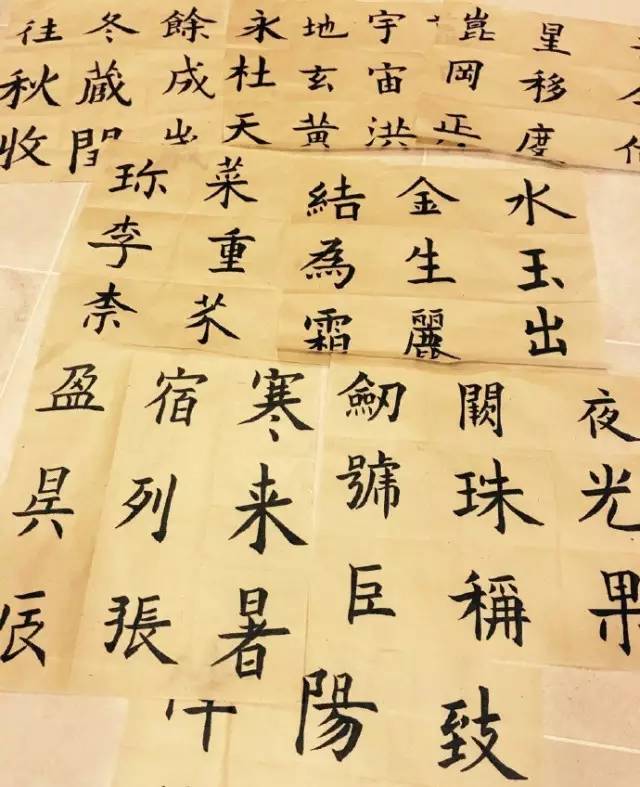 往秋收
冬蔵閏
餘成
永杜天
地玄黃
宇宙洪
崑岡
星移度
珎李柰
菜重芥
結為霜
金生麗
水玉出
盈昃辰
宿列張
寒来暑
劒號巨
闕珠稱
夜光果
陽
致